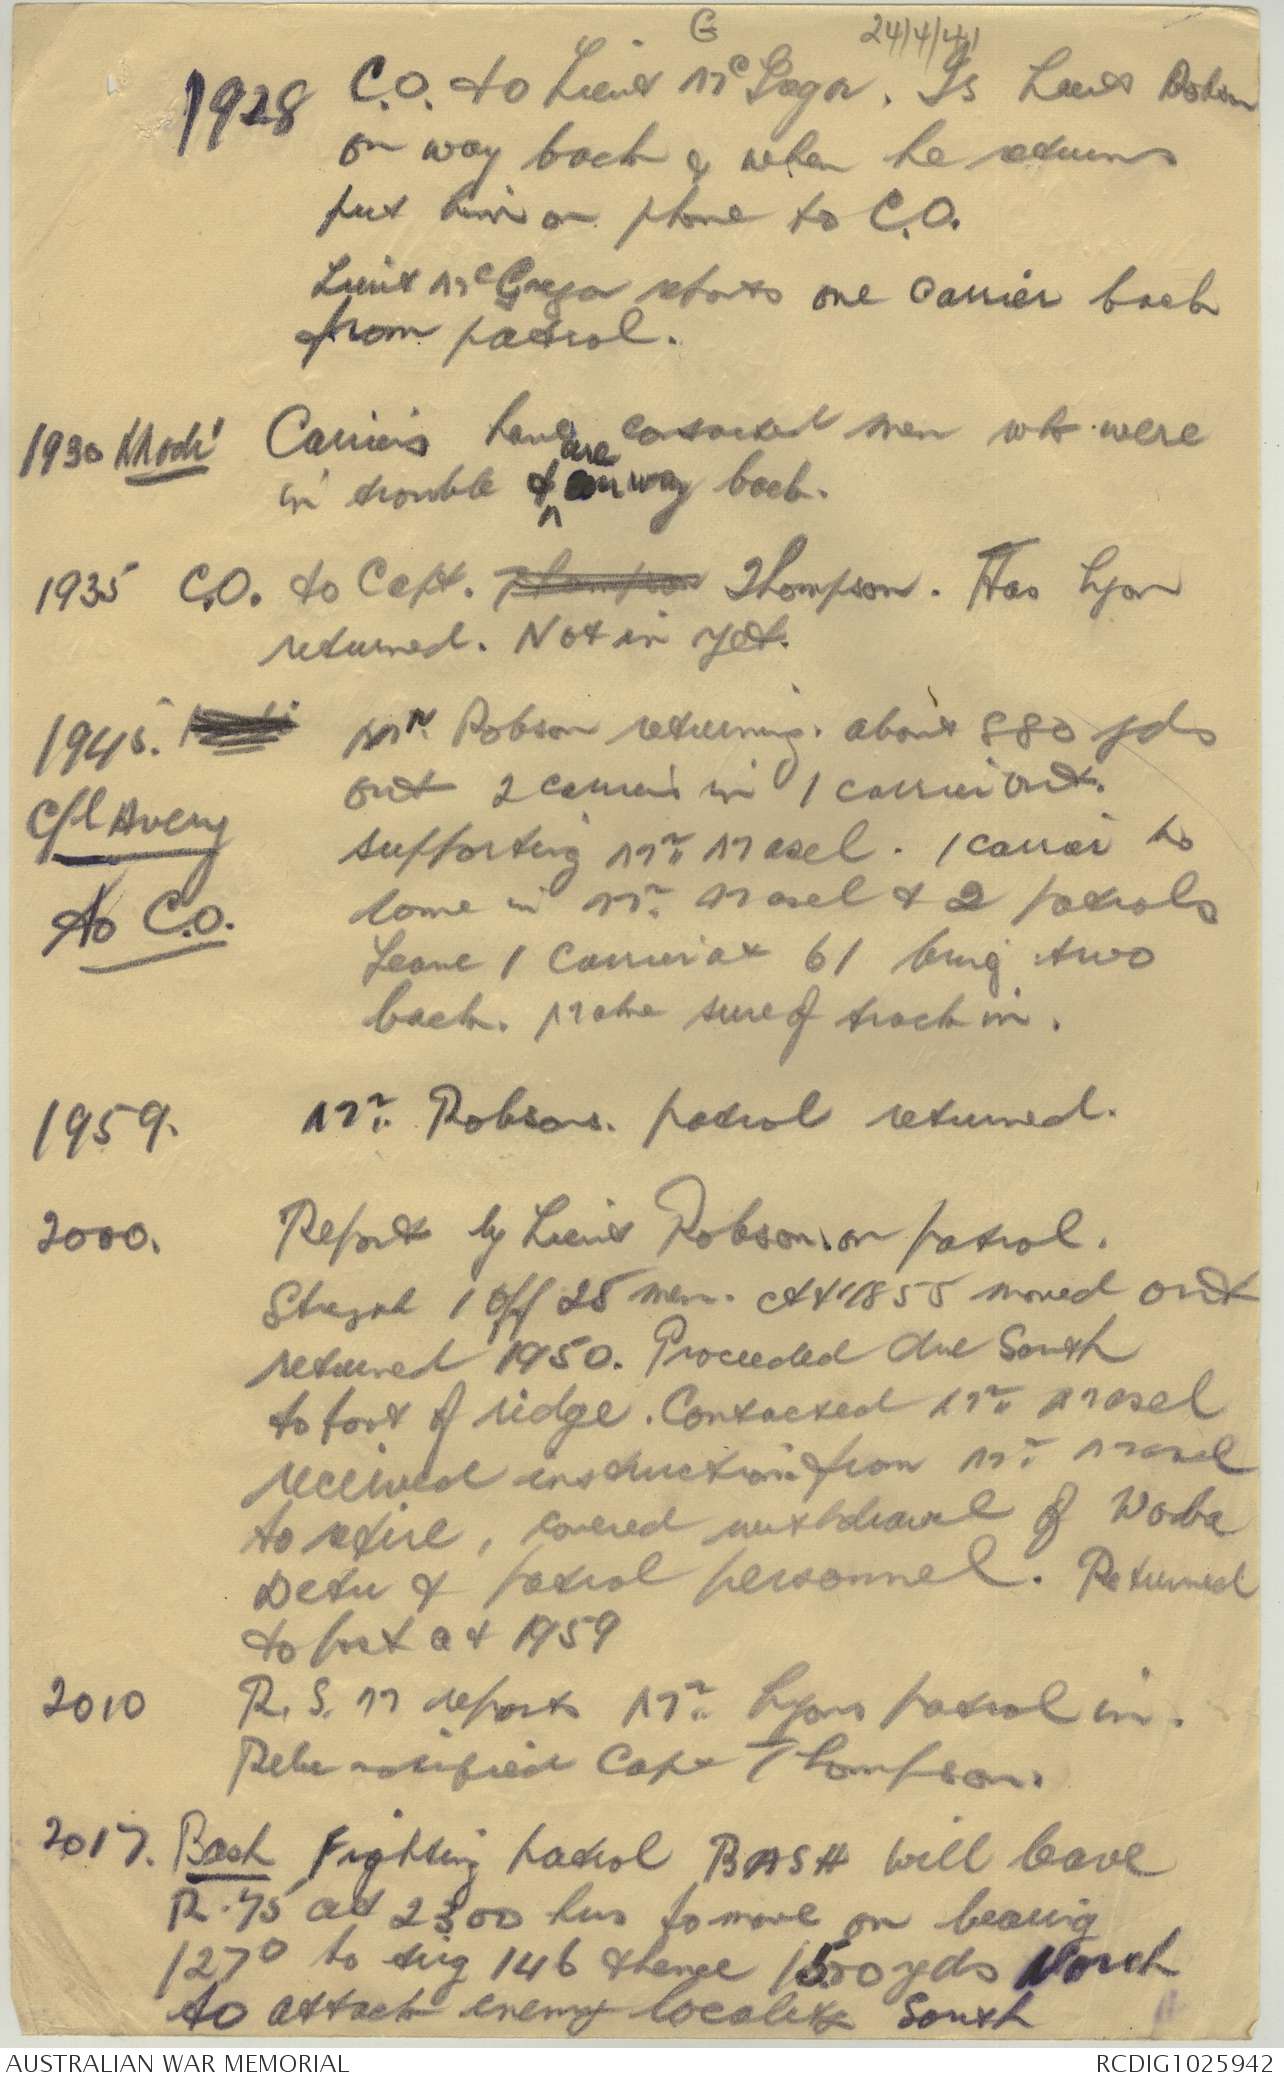 G 24/4/41
1928 C.O. to Lieut McGregor. Is Lieut Robson
on way back & when he returns
put him on phone to C.O.
Lieut McGregor reports one carrier back
from patrol.
1930 Carriers have contacted men who were
in trouble & are on way back.
1935 C.O. to Capt. Thompson Thompson. Has Lyon
returned. Not in yet.
1945. Mr. Robson returning. about 880 yds
out 2 carriers in 1 carrier out.
Cpl Avery supporting Mr. Masel. 1 carrier to
to C.O. come in Mr. Masel & 2 patrols
Leave 1 carrier at 61 bring two
back. Make sure of track in.
1959. Mr. Robsons patrol returned.
2000. Report by Lieut Robson on patrol.
Strength 1 Off 25 men. At 1855 moved out
returned 1950. Proceeded due South
to foot of ridge. Contacted Mr. Masel
received instruction from Mr. Masel
to retire, covered withdrawal of
& patrol personnel. Returned
to post at 1959
2010 R.S.M reports Mr. Lyons patrol in.
notified Capt Thompson.
2017. Bash Fighting patrol BASH will leave
R.75 at 2300 hrs to move on bearing
127° to trig 146 thence 1500 yds North
to attack enemy locality South
AUSTRALIAN WAR MEMORIAL RCDIG1025942